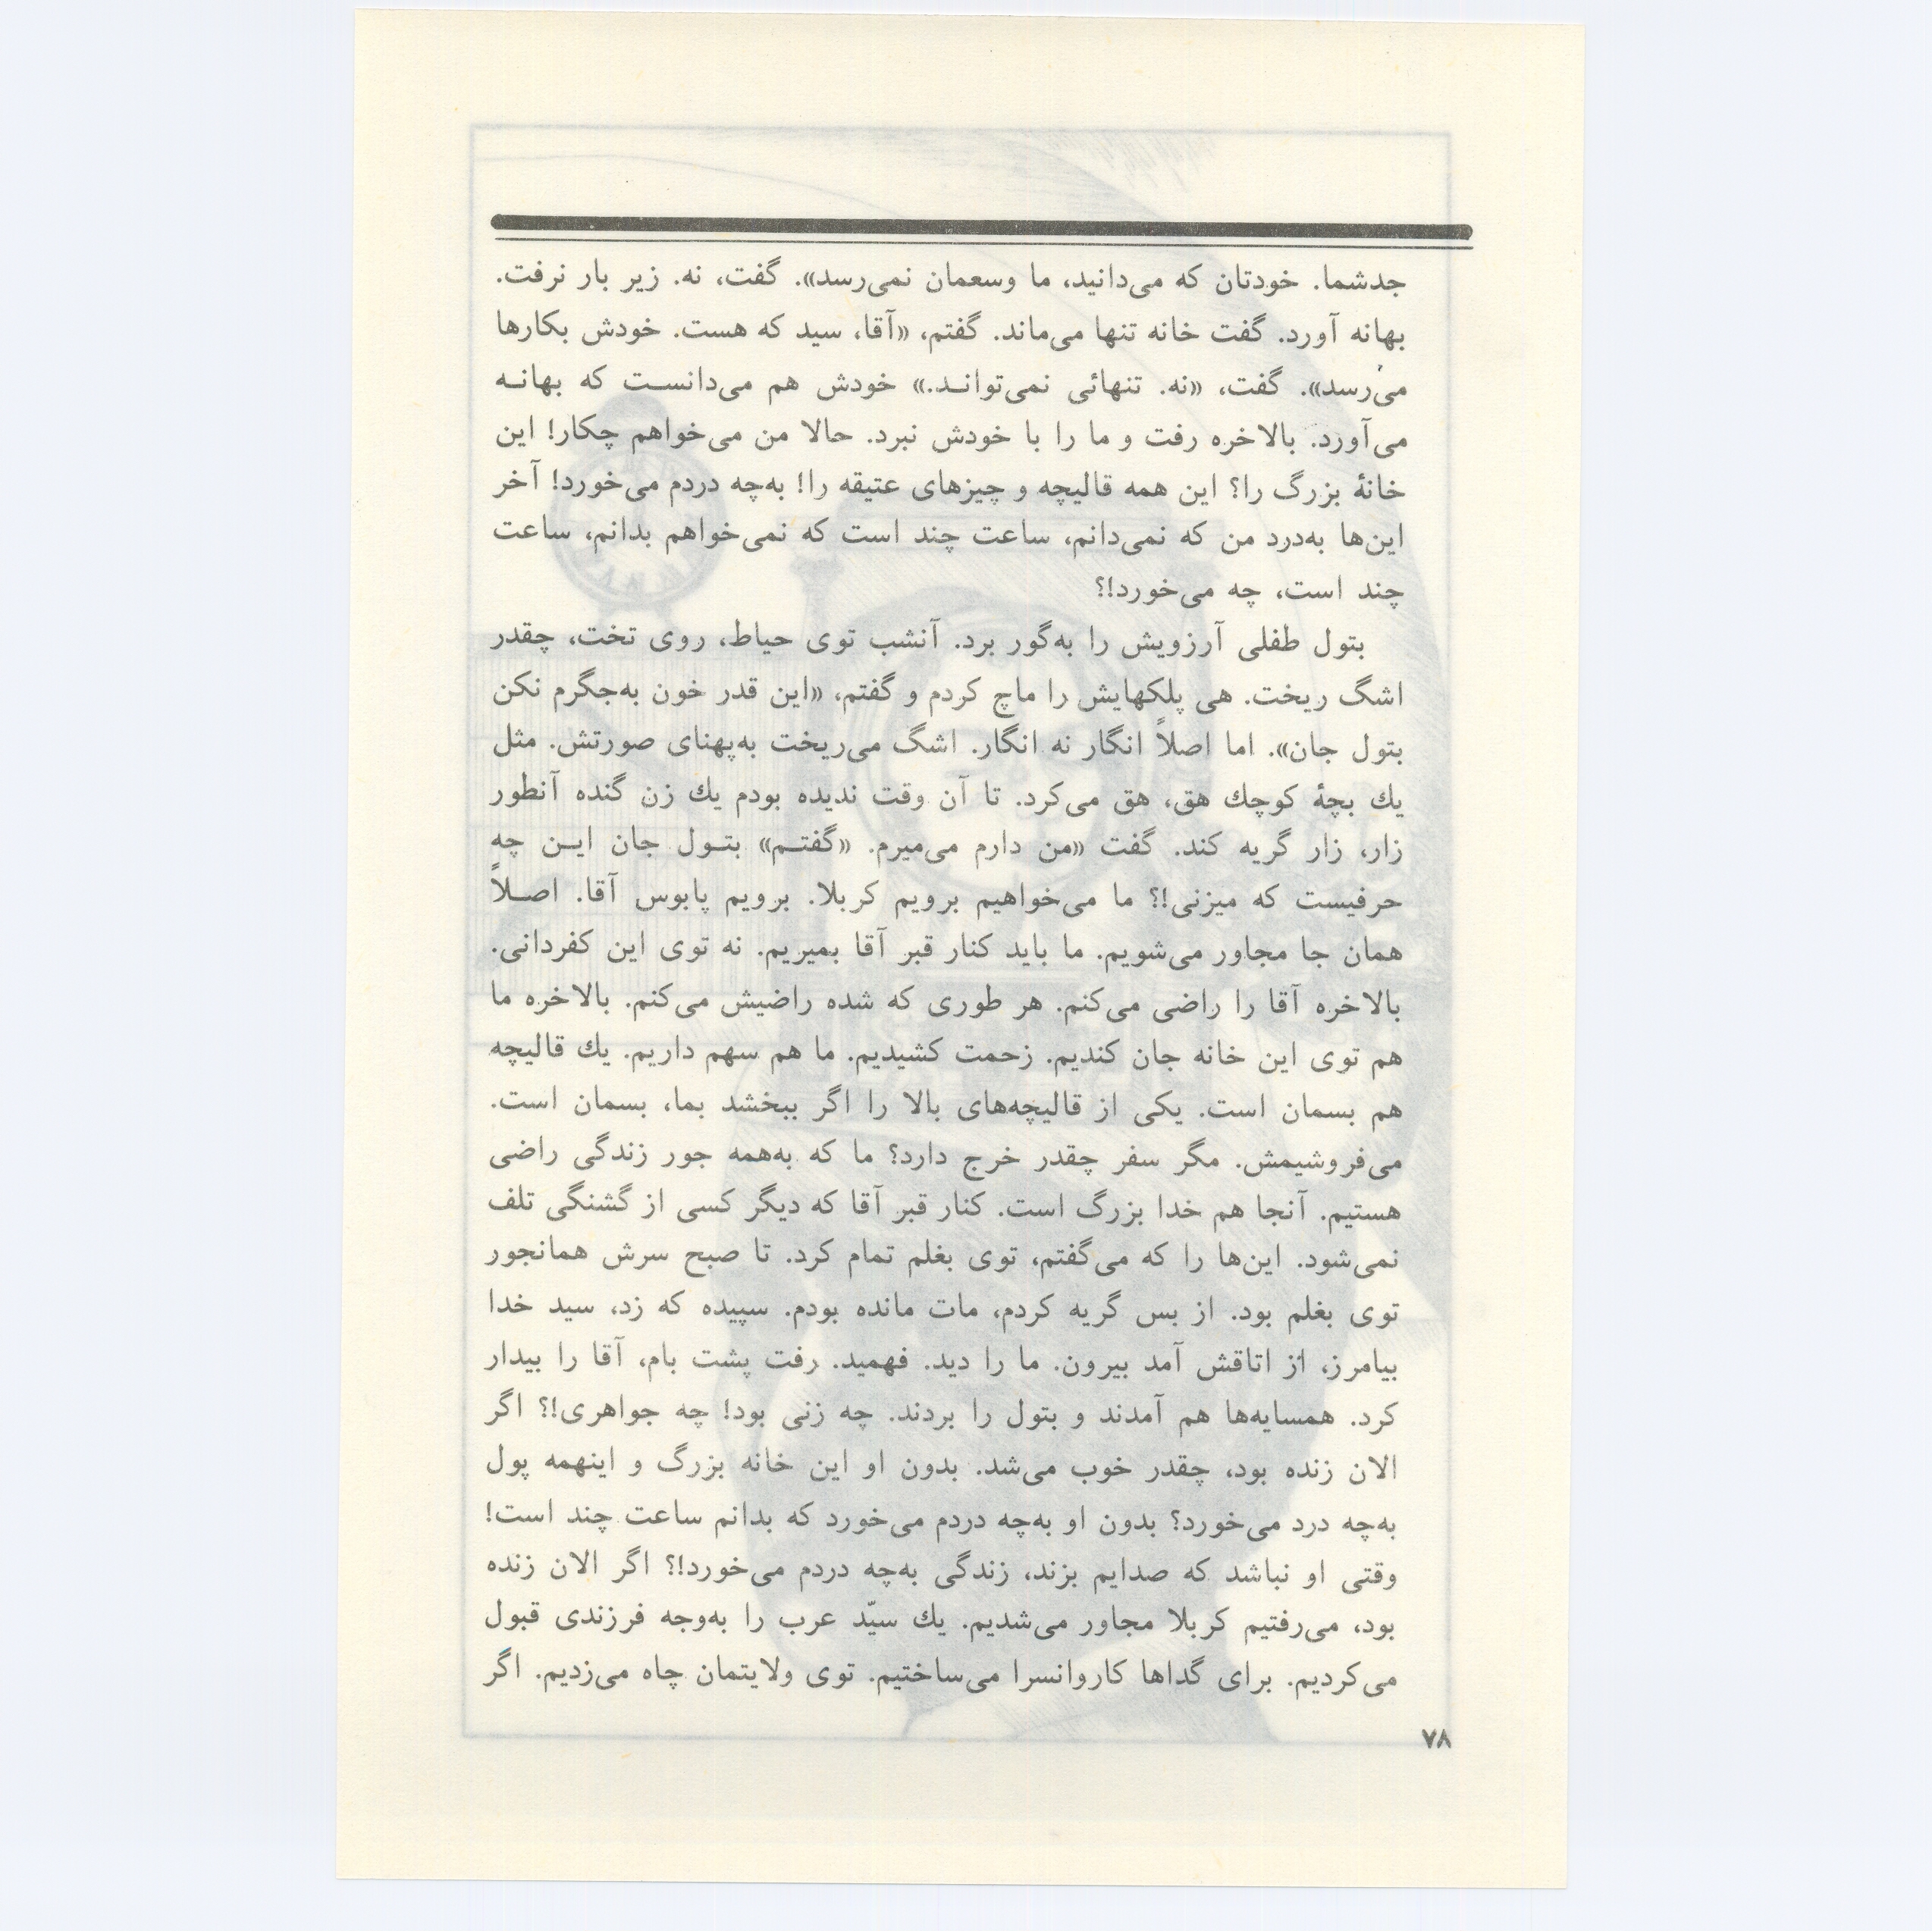 جدشما. خودتان که می‌دانید، ما وسعمان نمی‌رسد». گفت، نه. زیر بار نرفت.
بهانه آورد. گفت خانه تنها می‌ماند. گفتم، «آقا، سید که هست. خودش بکارها
می‌رسد». گفت، «نه. تنهائی نمی‌توانـد.» خودش هم می‌دانسـت که بهانـه
می‌آورد. بالاخره رفت و ما را با خودش نبرد. حالا من می‌خواهم چکار! این
خانهٔ بزرگ را؟ این همه قالیچه و چیزهای عتیقه را! به‌چه دردم می‌خورد! آخر
این‌ها به‌درد من که نمی‌دانم، ساعت چند است که نمی‌خواهم بدانم، ساعت
چند است، چه می‌خورد!؟
بتول طفلی آرزویش را به‌گور برد. آنشب توی حیاط، روی تخت، چقدر
اشگ ریخت. هی پلکهایش را ماچ کردم و گفتم، «این قدر خون به‌جگرم نکن
بتول جان». اما اصلاً انگار نه انگار. اشگ می‌ریخت به‌پهنای صورتش. مثل
یك بچهٔ کوچك هق، هق می‌کرد. تا آن وقت ندیده بودم یك زن گنده آنطور
زار، زار گریه کند. گفت «من دارم می‌میرم. «گفتـم» بتـول جان ایـن چه
حرفیست که میزنی!؟ ما می‌خواهیم برویم کربلا. برویم پابوس آقا. اصـلاً
همان جا مجاور می‌شویم. ما باید کنار قبر آقا بمیریم. نه توی این کفردانی.
بالاخره آقا را راضی می‌کنم. هر طوری که شده راضیش می‌کنم. بالاخره ما
هم توی این خانه جان کندیم. زحمت کشیدیم. ما هم سهم داریم. یك قالیچه
هم بسمان است. یکی از قالیچه‌های بالا را اگر ببخشد بما، بسمان است.
می‌فروشیمش. مگر سفر چقدر خرج دارد؟ ما که به‌همه جور زندگی راضی
هستیم. آنجا هم خدا بزرگ است. کنار قبر آقا که دیگر کسی از گشنگی تلف
نمی‌شود. این‌ها را که می‌گفتم، توی بغلم تمام کرد. تا صبح سرش همانجور
توی بغلم بود. از بس گریه کردم، مات مانده بودم. سپیده که زد، سید خدا
بیامرز، از اتاقش آمد بیرون. ما را دید. فهمید. رفت پشت بام، آقا را بیدار
کرد. همسایه‌ها هم آمدند و بتول را بردند. چه زنی بود! چه جواهری!؟ اگر
الان زنده بود، چقدر خوب می‌شد. بدون او این خانه بزرگ و اینهمه پول
به‌چه درد می‌خورد؟ بدون او به‌چه دردم می‌خورد که بدانم ساعت چند است!
وقتی او نباشد که صدایم بزند، زندگی به‌چه دردم می‌خورد!؟ اگر الان زنده
بود، می‌رفتیم کربلا مجاور می‌شدیم. یك سیّد عرب را به‌وجه فرزندی قبول
می‌کردیم. برای گداها کاروانسرا می‌ساختیم. توی ولایتمان چاه می‌زدیم. اگر
۷۸